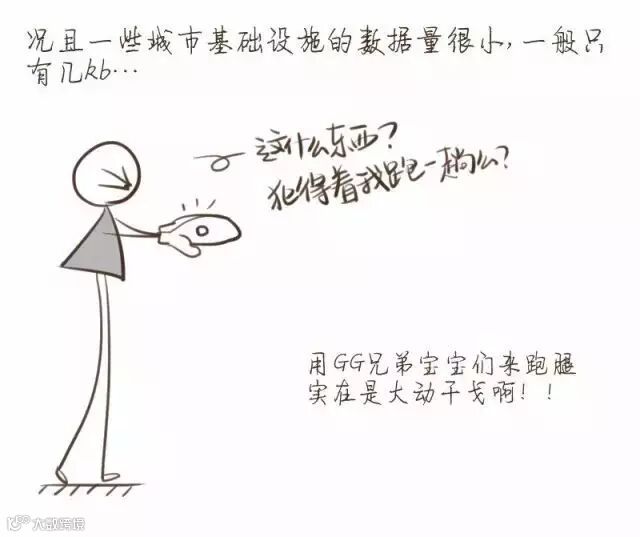 况且一些城市基础设施的数据量很小，一般只
有几kb…
这什么东西？
犯得着我跑一趟么？
用GG兄弟宝宝们来跑腿
实在是大动干戈啊！！
大数跨境